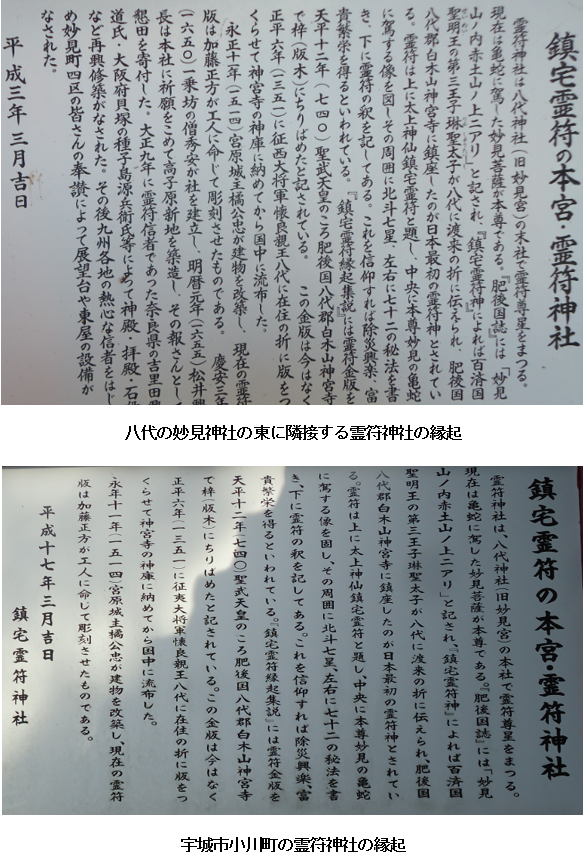 鎮宅霊符の本宮・霊符神社
霊符神社は八代神社(旧妙見宮)の末社で霊符尊星をまつる。
現在は亀蛇に駕した妙見菩薩が本尊である。『肥後国誌』には「妙見
山ノ内赤土山ノ上ニアリ」と記され、『鎮宅霊符神』によれば百済国
聖明王の第三王子琳聖太子が八代に渡来の折に伝えられ、肥後国
八代郡白木山神宮寺に鎮座したのが日本最初の霊符神とされてい
る。霊符は上に太上神仙鎮宅霊符と題し、中央に本尊妙見の亀蛇
に駕する像を図しその周囲に北斗七星、左右に七十二の秘法を書
き、下に霊符の釈を記してある。これを信仰すれば除災興楽、富
貴繁栄を得るといわれている。『鎮宅霊符縁起集説』には霊符金版を
天平十二年(七四〇)聖武天皇のころ肥後国八代郡白木山神宮寺
で梓(版木)にちりばめたと記されている。この金版は今はなく
正平六年(一三五一)に征西大将軍懐良親王八代に在住の折に版をつ
くらせて神宮寺の神庫に納めてから国中に流布した。
永正十一年(一五一四)宮原城主橘公忠が建物を改築し、現在の霊符
版は加藤正方が工人に命じて彫刻させたものである。慶安三年
(一六五〇)一乗坊の僧秀安が社を建立し、明暦元年(一六五五)松井興
長は本社に祈願をこめて高子原新地を築造し、その報さんとして
懇田を寄付した。大正九年に霊符信者であった奈良県の吉里田
道氏・大阪府貝塚の種子島源兵衛氏等によって神殿・拝殿・石
など再興修築がなされた。その後九州各地の熱心な信者をはじ
め妙見町四区の皆さんの奉讃によって展望台や東屋の設備が
なされた。
平成三年三月吉日
八代の妙見神社の東に隣接する霊符神社の縁起
鎮宅霊符の本宮・霊符神社
霊符神社は、八代神社(旧妙見宮)の本社で霊符尊星をまつる。
現在は亀蛇に駕した妙見菩薩が本尊である。『肥後国誌』には「妙見
山ノ内赤土山ノ上ニアリ」と記され、『鎮宅霊符神』によれば百済国
聖明王の第三王子琳聖太子が八代に渡来の折に伝えられ、肥後国
八代郡白木山神宮寺に鎮座したのが日本最初の霊符神とされてい
る。霊符は上に太上神仙鎮宅霊符と題し、中央に本尊妙見の亀蛇
に駕する像を図し、その周囲に北斗七星、左右に七十二の秘法を書
き、下に霊符の釈を記してある。これを信仰すれば除災興楽、富
貴繁栄を得るといわれている。『鎮宅霊符縁起集説』には霊符金版を
天平十二年(七四〇)聖武天皇のころ肥後国八代郡白木山神宮寺
で梓(版木)にちりはめたと記されている。この金版は今はなく
正平六年(一三五一)に征夷大将軍懐良親王八代に在住の折に版をつ
くらせて神宮寺の神庫に納めてから国中に流布した。
永年十一年(一五一四)宮原城主橘公忠が建物を改築し、現在の霊符
版は加藤正方が工人に命じて彫刻させたものである。
平成十七年三月吉日
鎮宅霊符神社
宇城市小川町の霊符神社の縁起